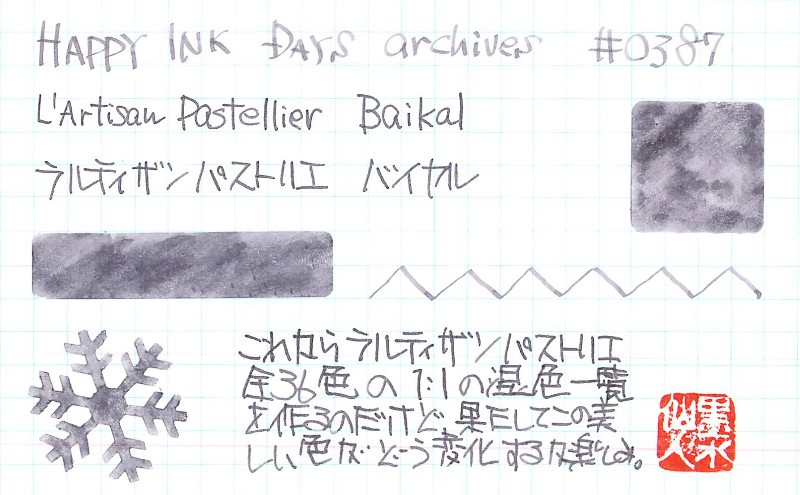 HAPPY INK DAYS archives #0387
L'Artisan Pastellier Baikal
ラルティザン パストリエ バイカル
これからラルティザン パストリエ
全36色の1:1の混色一覧
を作るのだけど、果たしてこの美
しい色がどう変化するか楽しみ。
墨水
仙人